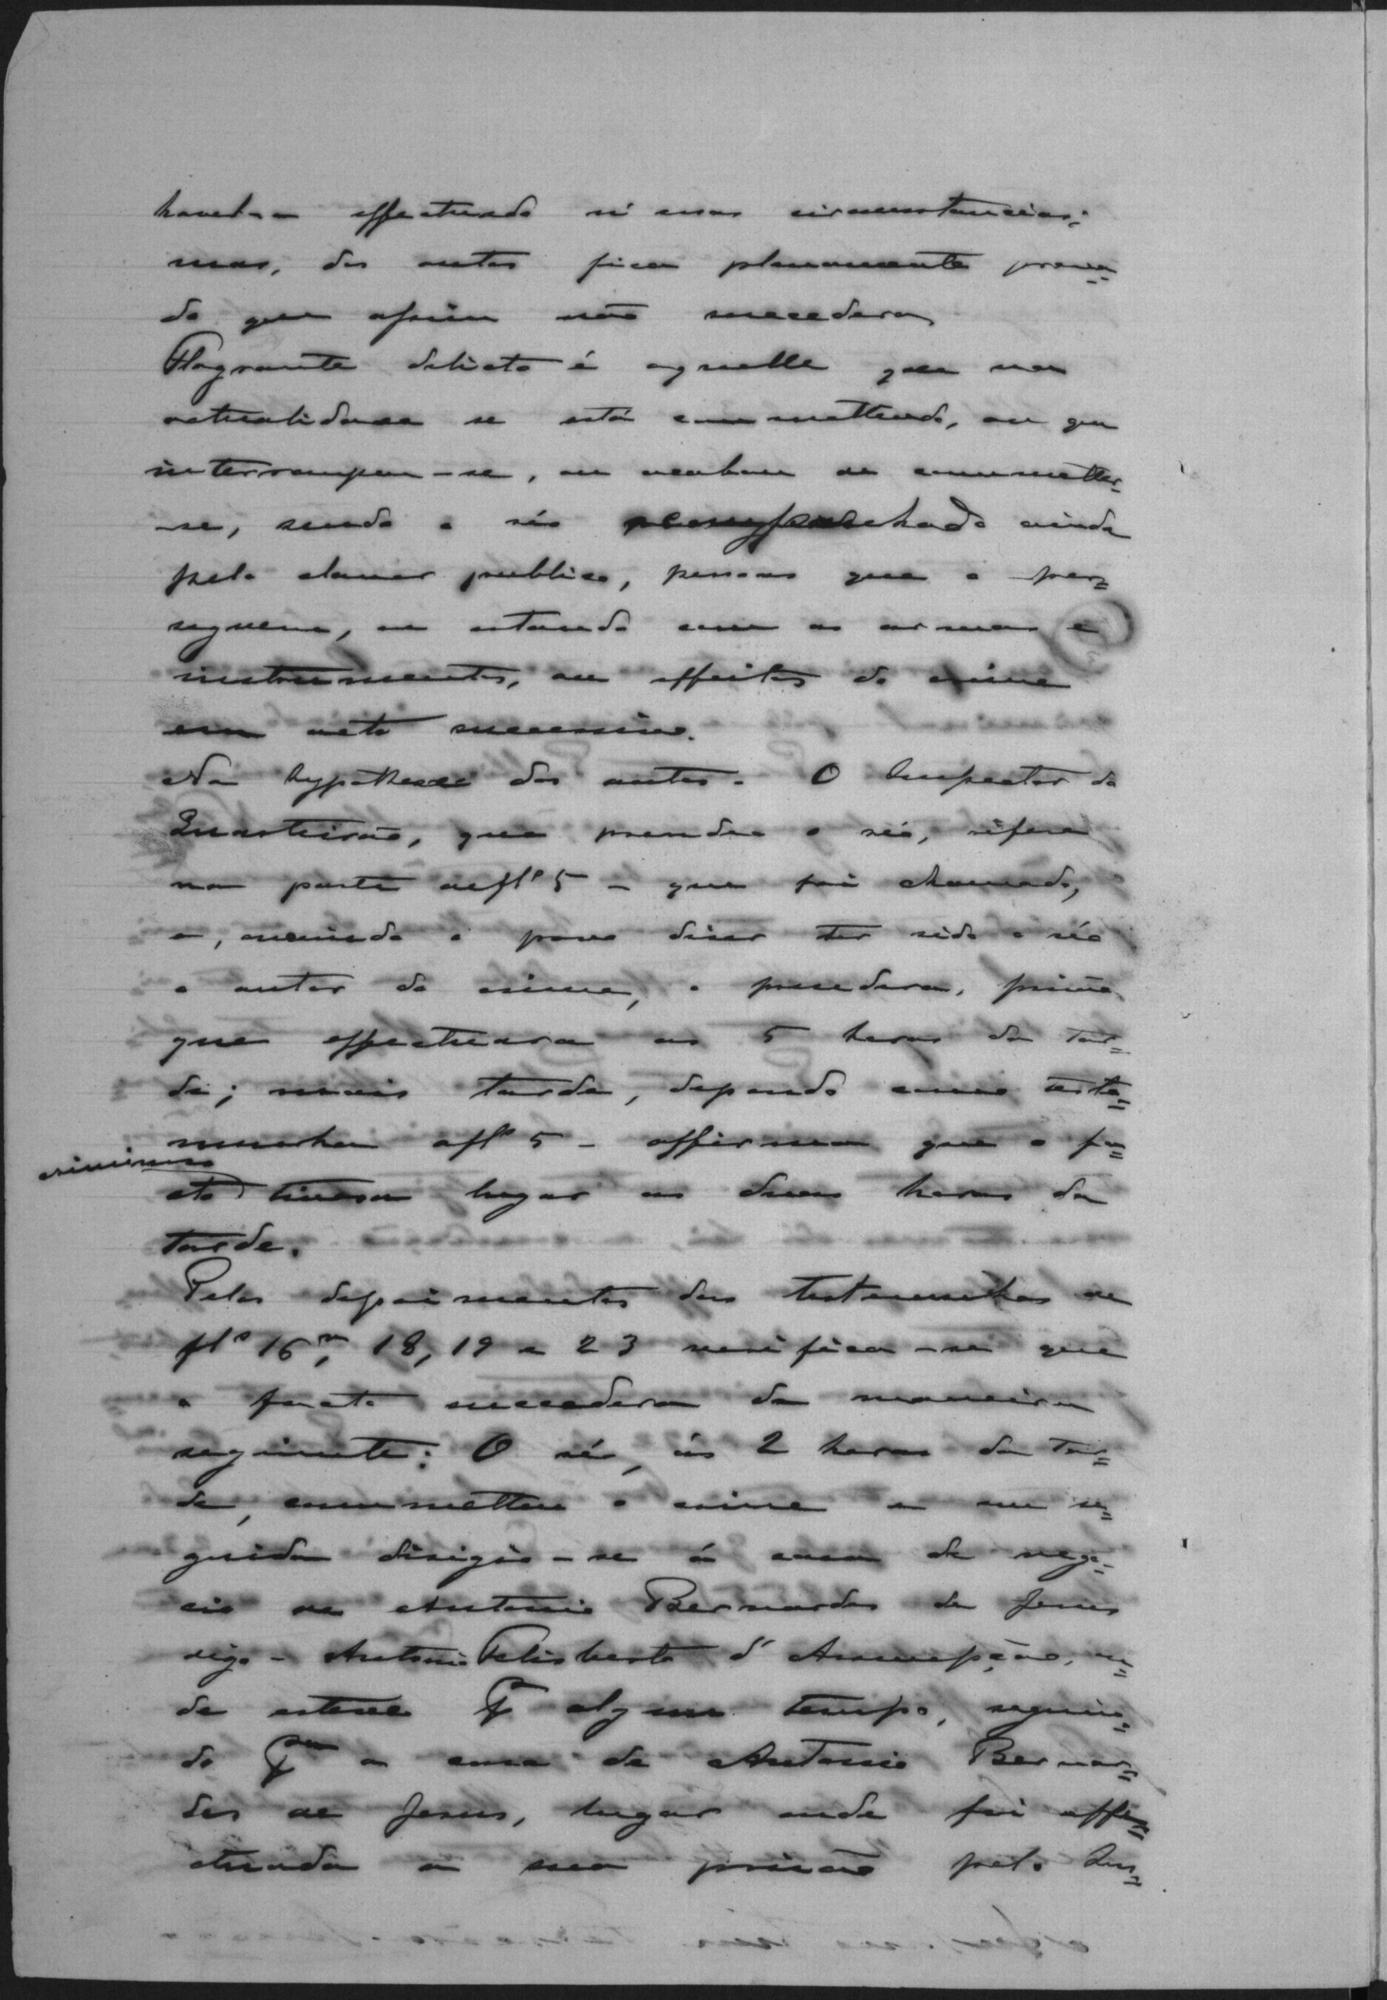 haver-se effectuado n'essas circumstancias;
mas, dos autos fica plenamente prova-
do que assim não succedera,
Flagrante delicto é aquelle que na
actualidade se está commettendo, ou que
interrompeu-se, ou acabou de commetter-
-se, sendo o réo ainda
pelo clamor publico, pessoas que o per-
seguem, ou estando com as armas e
instrumentos, ou effeitos do crime
em acto successivo.
Na hypothese dos autos. O Inspector do
Quarteirão, que prendeu o réo, refere
na parte de fls 5 - que foi chamado,
e, ouvindo o povo dizer ter sido o réo
o autor do crime, o prendera, prisão
que effectuara as 5 horas da tar-
de; mais tarde, depondo como teste-
munha a fls 5 - affirma que o fa-
criminoso
cto tivera lugar as duas horas da
tarde.
Pelos depoimentos das testemunhas de
fls 16v, 18, 19 e 23 verifica-se que
o facto succedera da maneira
seguinte: O réo, ás 2 horas da tar-
de, commetteu o crime e em se-
guida dirigio-se á casa de nego-
cio de Antonio Bernardes de Jesus
digo - Antonio Felisberto d'Assumpção, on-
de esteve algum tempo, seguin-
do a casa de Antonio Bernar-
des de Jesus, lugar onde foi effe-
ctuada a sua prisão pelo Ins-